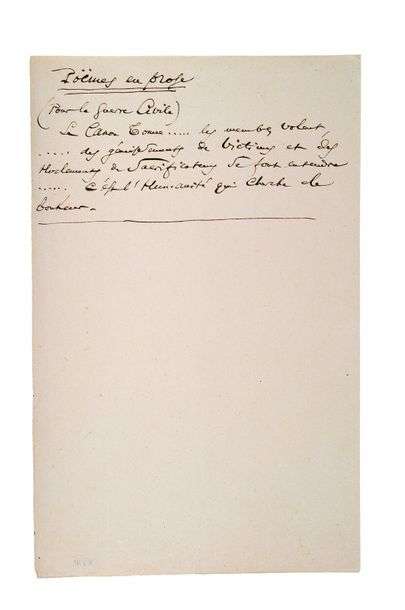 Poëmes en prose
(Pour la guerre Civile)
Le Canon Tonne..... les membres volent
..... des gémissements de Victimes et des
Hurlements de Sacrificateurs se font entendre
...... C'est l'Humanité qui Cherche le
bonheur.